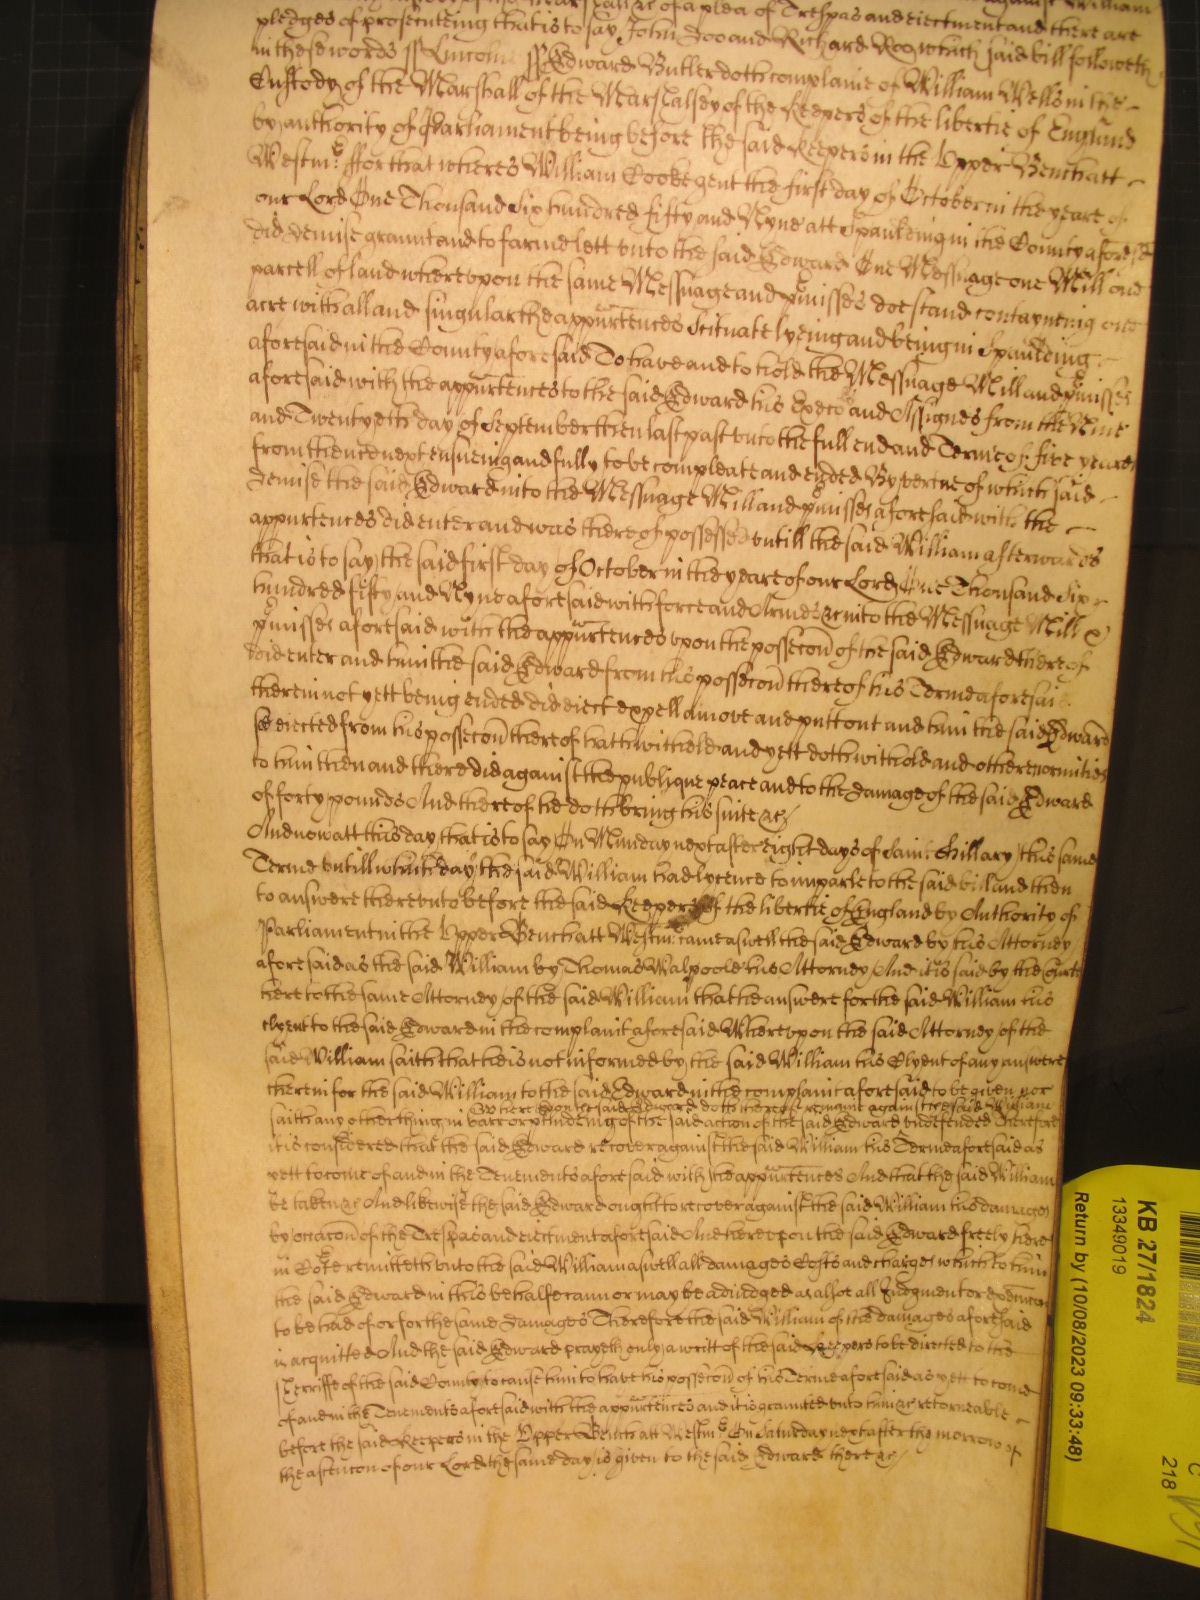 pledges of prosecuteing that is to say John Doo and Richard Roo which said bill followeth
in these words ss Lincoln ss Edward Butler doth complaine of William Wells in the
Custody of the Marshall of the Marshalsey of the Keepers of the libertie of England
by authority of Parliament being before the said Keepers in the Upper Bench att
Westmr. ffor that wheras William Cooke gent the first day of October in the yeare of
our Lord One Thousand Six hundred fifty and Nyne att Spaldeing in the County aforesd
did demise graunt and to farme lett unto the said Edward One Messuage one Mill one
parcell of land whereupon the same Messuage and pmisses doe stand conteyneing one
acre with all and singular the appurtences Scituate lyeing and being in Spaldeing
aforesaid in the County aforesaid To have and to hold the Messuage Mill and pmisses
aforesaid with the appurtences to the said Edward his Execrs and Assignes from the Nine
and Twentyeth day of September then last past unto the full end and Terme of five yeares
from thence next ensueing and fully to be compleate and ended By vertue of which said
Demise the said Edward into the Messuage Mill and pmisses aforesaid with the
appurtences did enter and was thereof possessed untill the said William afterwards
that is to say the said first day of October in the yeare of our Lord One Thousand Six
hundred fifty and Nyne aforesaid with force and Armes &c into the Messuage Mill &
pmisses aforesaid with the appurtences upon the possecon of the said Edward thereof
did enter and him the said Edward from his possecon thereof his Terme aforesaid
therein not yett being ended did eiect expell amove and putt out and him the said Edward
soe eiected from his possecon thereof hath withheld and yett doth withold and other enormities
to him then and there did against the publique peace and to the damage of the said Edward
of forty pounds And thereof he doth bring his suite &c
And now att this day that is to say On Munday next after eight dayes of Saint Hillary this same
Terme untill which day the said William had lycence to imparle to the said bill and then
to answere thereunto before the said Keepers of the libertie of England by Authority of
Parliament in the Upper Bench att Westmr. came aswell the said Edward by his Attorney
aforesaid as the said William by Thomas Walpoole his Attorney And it is said by the Courte
here to the same Attorney of the said William that he answere for the said William his
clyent to the said Edward in the complaint aforesaid Whereupon the said Attorney of the
said William saith that he is not informed by the said William his Clyent of any answere
therein for the said William to the said Edward in the complaint aforesaid to be given nor
saith any other thing in barr or of the said action of the said Edward Therefore
Whereupon the said Edward doth thereof remaine against the said William undefended
it is considered that the said Edward recover against the said William his Terme aforesaid as
yett to come of and in the Tenements aforesaid with the appurtences And that the said William
be taken &c And likewise the said Edward ought to recover against the said William his damages
by occacon of the Trespas and eiectment aforesaid And hereupon the said Edward freely here
in Corte remitteth unto the said William aswell all damages Costs and charges which to him
the said Edward in this behalfe can or may be adiudged as alsoe all Judgment or execucon
to be had of or for the same damages Therefore the said William of the damages aforesaid
is acquitted And the said Edward prayeth only a writt of the said Keepers to be directed to the
Sherriffe of the said County to cause him to have his possecon of his Terme aforesaid as yett to come
of and in the Tenements aforesaid with the appurtences and it is graunted unto him &c retorneable
before the said Keepers in the Upper Bench att Westmr. On Saturday next after the morrow of
the ascencon of our Lord the same day is given to the said Edward there &c
KB 271/824
13349019
Return by (10/08/2023 09:33:48)
218